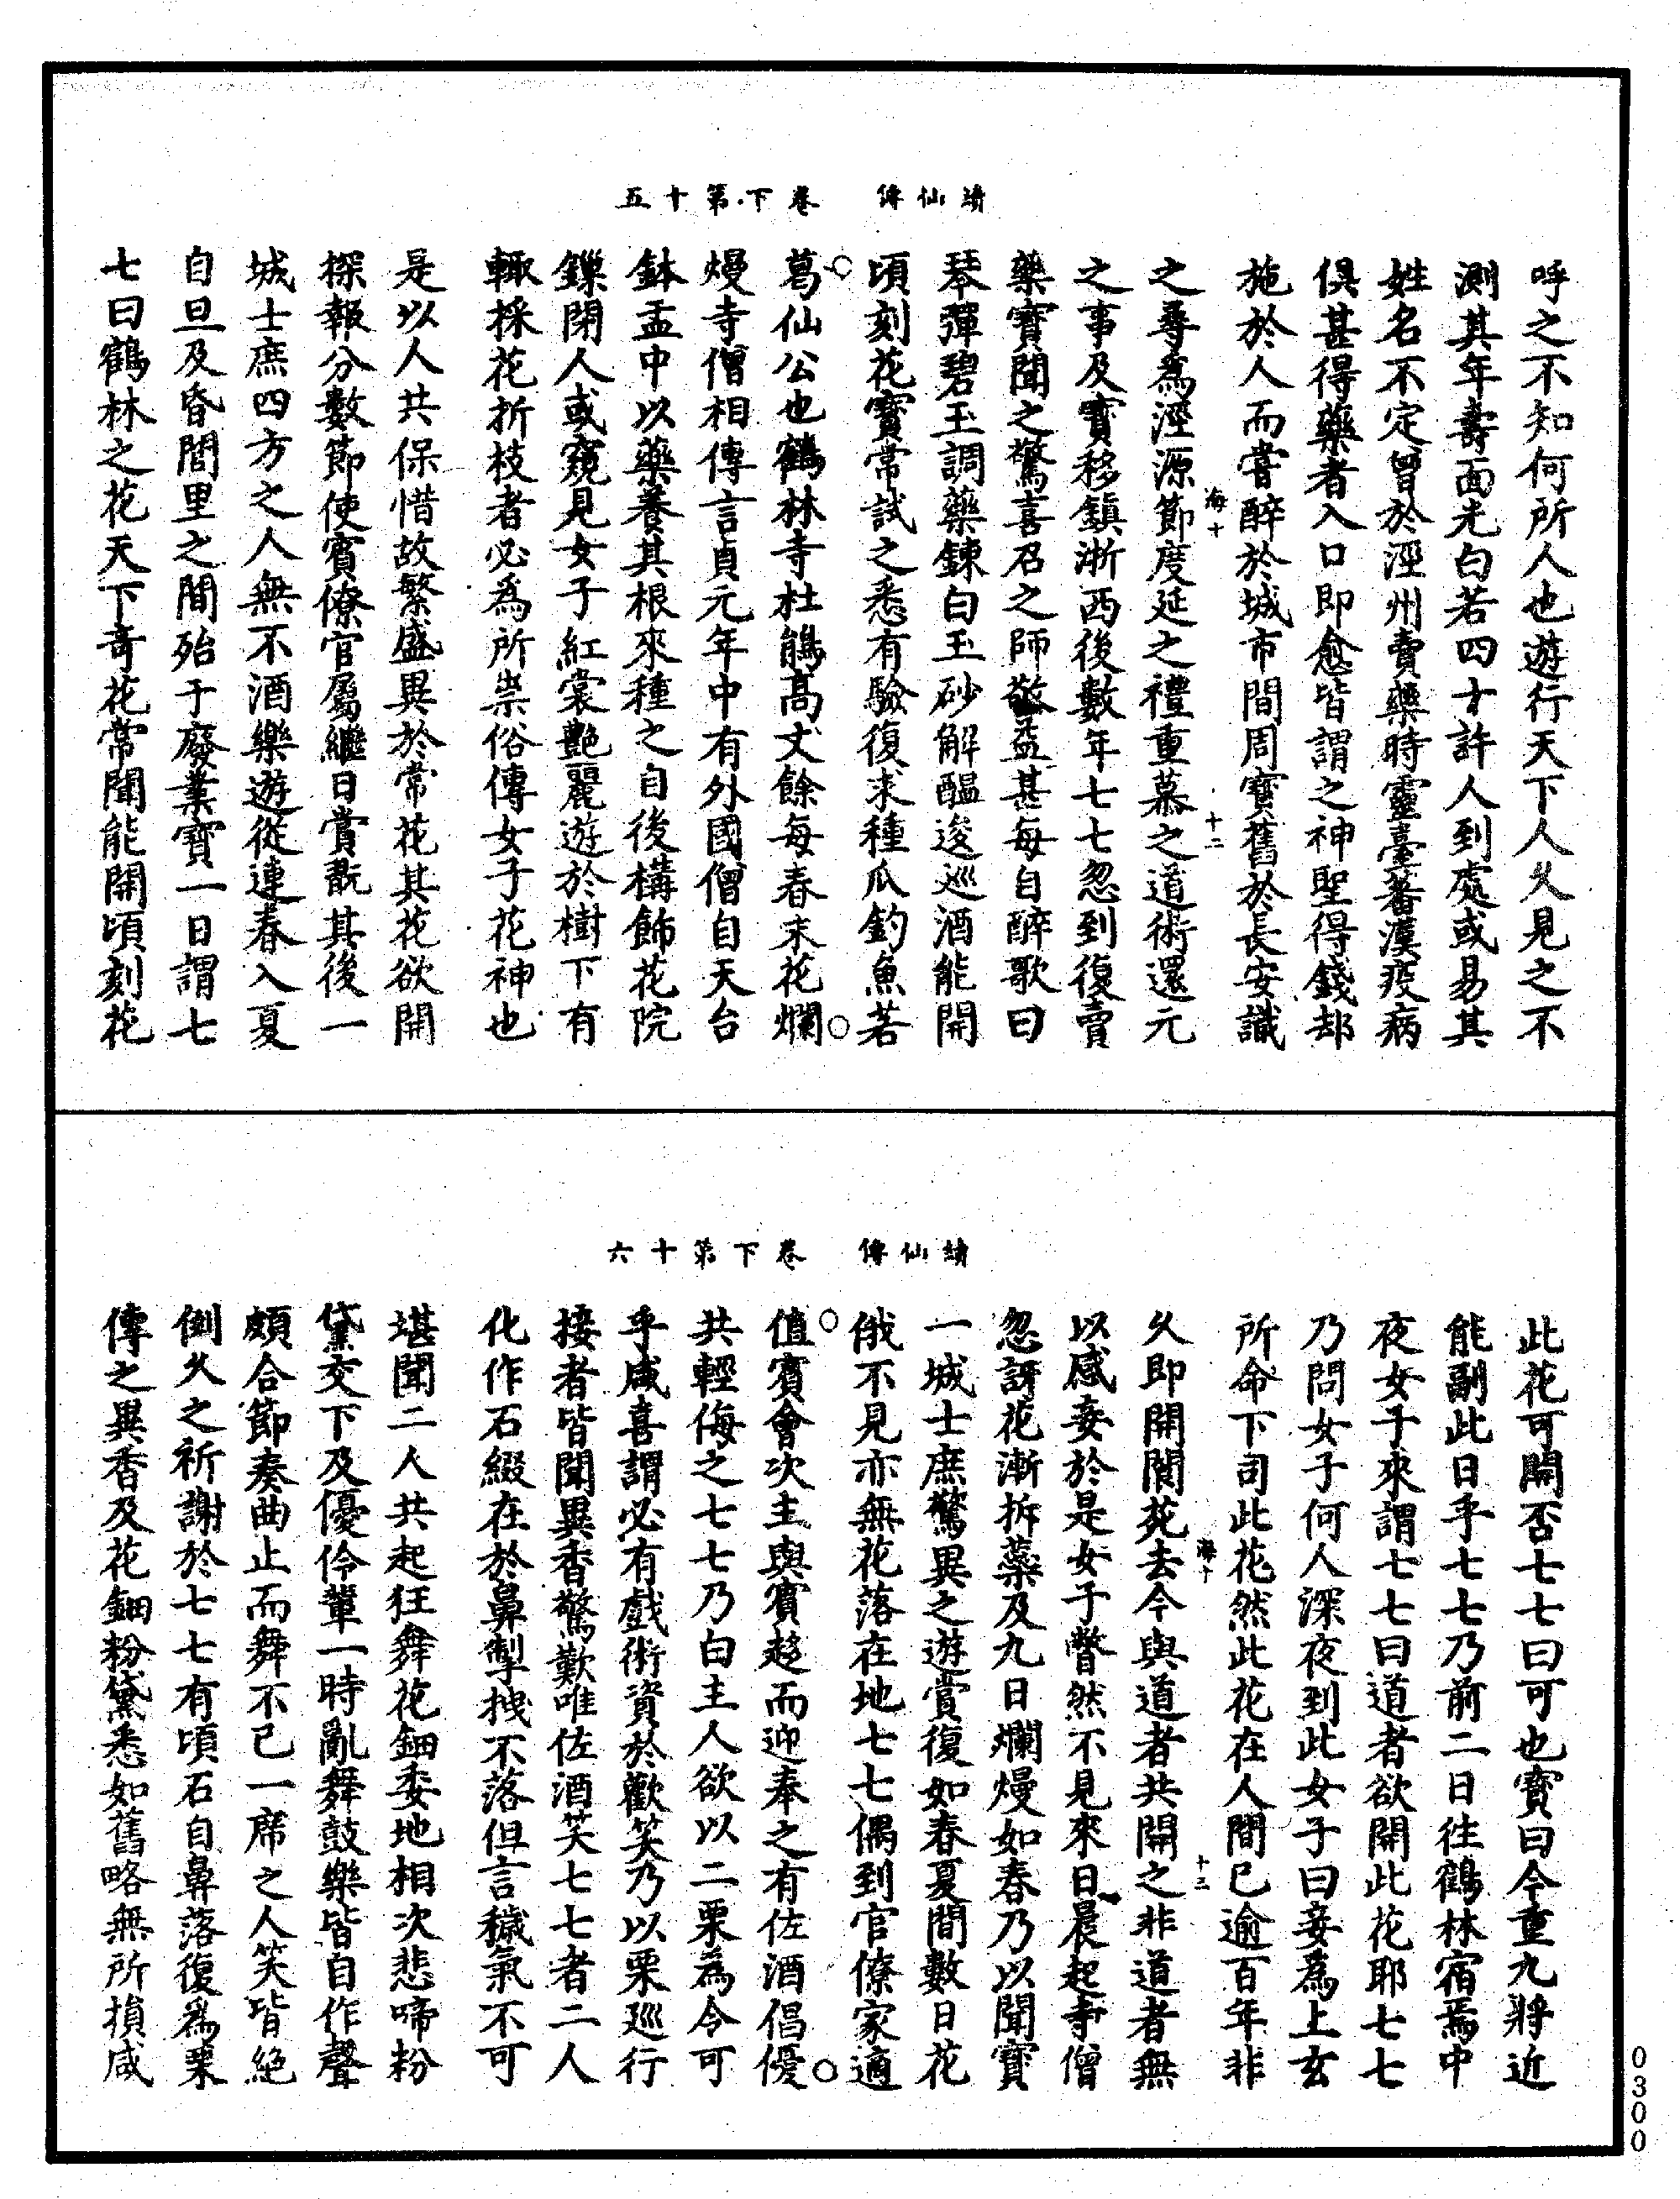 續仙傳　卷下第十五
呼之不知何所人也遊行天下人久見之不
測其年壽面光白若四十許人到處或易其
姓名不定曾於涇州賣藥時靈臺蕃漢疫病
俱甚得藥者入口即愈皆謂之神聖得錢却
施於人而嘗醉於城市間周寶舊於長安識
海十　十二
之尋爲涇源節度延之禮重慕之道術還元
之事及寶移鎮浙西後數年七七忽到復賣
藥寶聞之驚喜召之師敬益甚每自醉歌曰
琴彈碧玉調藥鍊白玉砂解醖逡巡酒能開
頃刻花寶常試之悉有驗復求種瓜釣魚若
葛仙公也鶴林寺杜鵑高丈餘每春末花爛
熳寺僧相傳言貞元年中有外國僧自天台
鉢盂中以藥養其根來種之自後構飾花院
鏁閉人或窺見女子紅裳艷麗遊於樹下有
輙採花折枝者必爲所祟俗傳女子花神也
是以人共保惜故繁盛異於常花其花欲開
探報分數節使賓僚官屬繼日賞翫其後一
城士庶四方之人無不酒樂遊從連春入夏
自旦及昏閭里之間殆于廢業寶一日謂七
七曰鶴林之花天下奇花常聞能開頃刻花
續仙傳　卷下第十六
此花可開否七七曰可也寶曰今重九將近
能副此日乎七七乃前二日往鶴林宿焉中
夜女子來謂七七曰道者欲開此花耶七七
乃問女子何人深夜到此女子曰妾爲上玄
所命下司此花然此花在人間已逾百年非
海十　十三
久即開閬苑去今與道者共開之非道者無
以感妾於是女子瞥然不見來日晨起寺僧
忽訝花漸拆蘂及九日爛熳如春乃以聞寶
一城士庶驚異之遊賞復如春夏間數日花
俄不見亦無花落在地七七偶到官僚家適
值賓會次主與賓趍而迎奉之有佐酒倡優
共輕侮之七七乃白主人欲以二栗爲令可
乎咸喜謂必有戲術資於歡笑乃以栗巡行
接者皆聞異香驚歎唯佐酒笑七七者二人
化作石綴在於鼻掣拽不落但言穢氣不可
堪聞二人共起狂舞花鈿委地相次悲啼粉
黛交下及優伶輩一時亂舞鼓樂皆自作聲
頗合節奏曲止而舞不已一席之人笑皆絕
倒久之祈謝於七七有頃石自鼻落復爲栗
傳之異香及花鈿粉黛悉如舊略無所損咸
0300